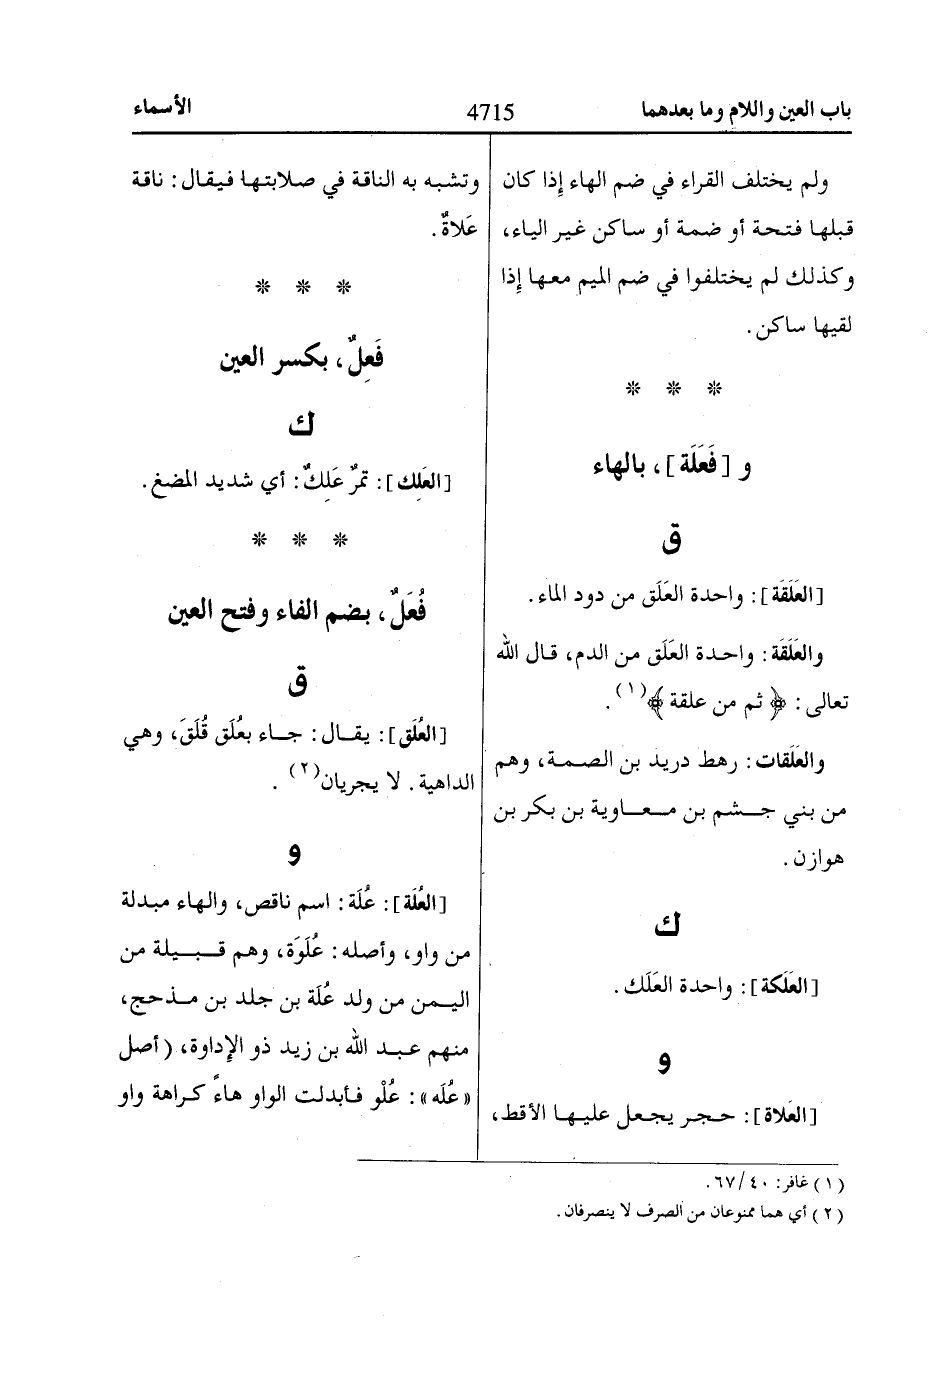 باب العين واللام وما بعدهما 4715 الأسماء
ولم يختلف القراء في ضم الهاء إذا كان
قبلها فتحة أو ضمة أو ساكن غير الياء،
وكذلك لم يختلفوا في ضم الميم معها إذا
لقيها ساكن.
* * *
و [فَعَلَة]، بالهاء
ق
[العَلَقَة]: واحدة العَلَق من دود الماء.
والعَلَقَة: واحدة العَلَق من الدم، قال الله
تعالى: ﴿ثم من علقة﴾(١).
والعَلَقات: رهط دريد بن الصمة، وهم
من بني جشم بن معاوية بن بكر بن
هوازن.
ك
[العَلَكة]: واحدة العَلَك.
و
[العَلاة]: حجر يجعل عليها الأقط،
وتشبه به الناقة في صلابتها فيقال: ناقة
عَلاةٌ.
* * *
فَعِلٌ، بكسر العين
ك
[العَلِك]: تمرٌ عَلِكٌ: أي شديد المضغ.
* * *
فُعَلٌ، بضم الفاء وفتح العين
ق
[العُلَق]: يقال: جاء بعُلَق قُلَقَ، وهي
الداهية. لا يجريان(٢).
و
[العُلَة]: عُلَة: اسم ناقص، والهاء مبدلة
من واو، وأصله: عُلَوَة، وهم قبيلة من
اليمن من ولد عُلَة بن جلد بن مذحج،
منهم عبد الله بن زيد ذو الإداوة، (أصل
«عُلَه»: عُلْو فأبدلت الواو هاءً كراهة واو
(١) غافر: ٤٠/٦٧.
(٢) أي هما ممنوعان من الصرف لا ينصرفان.